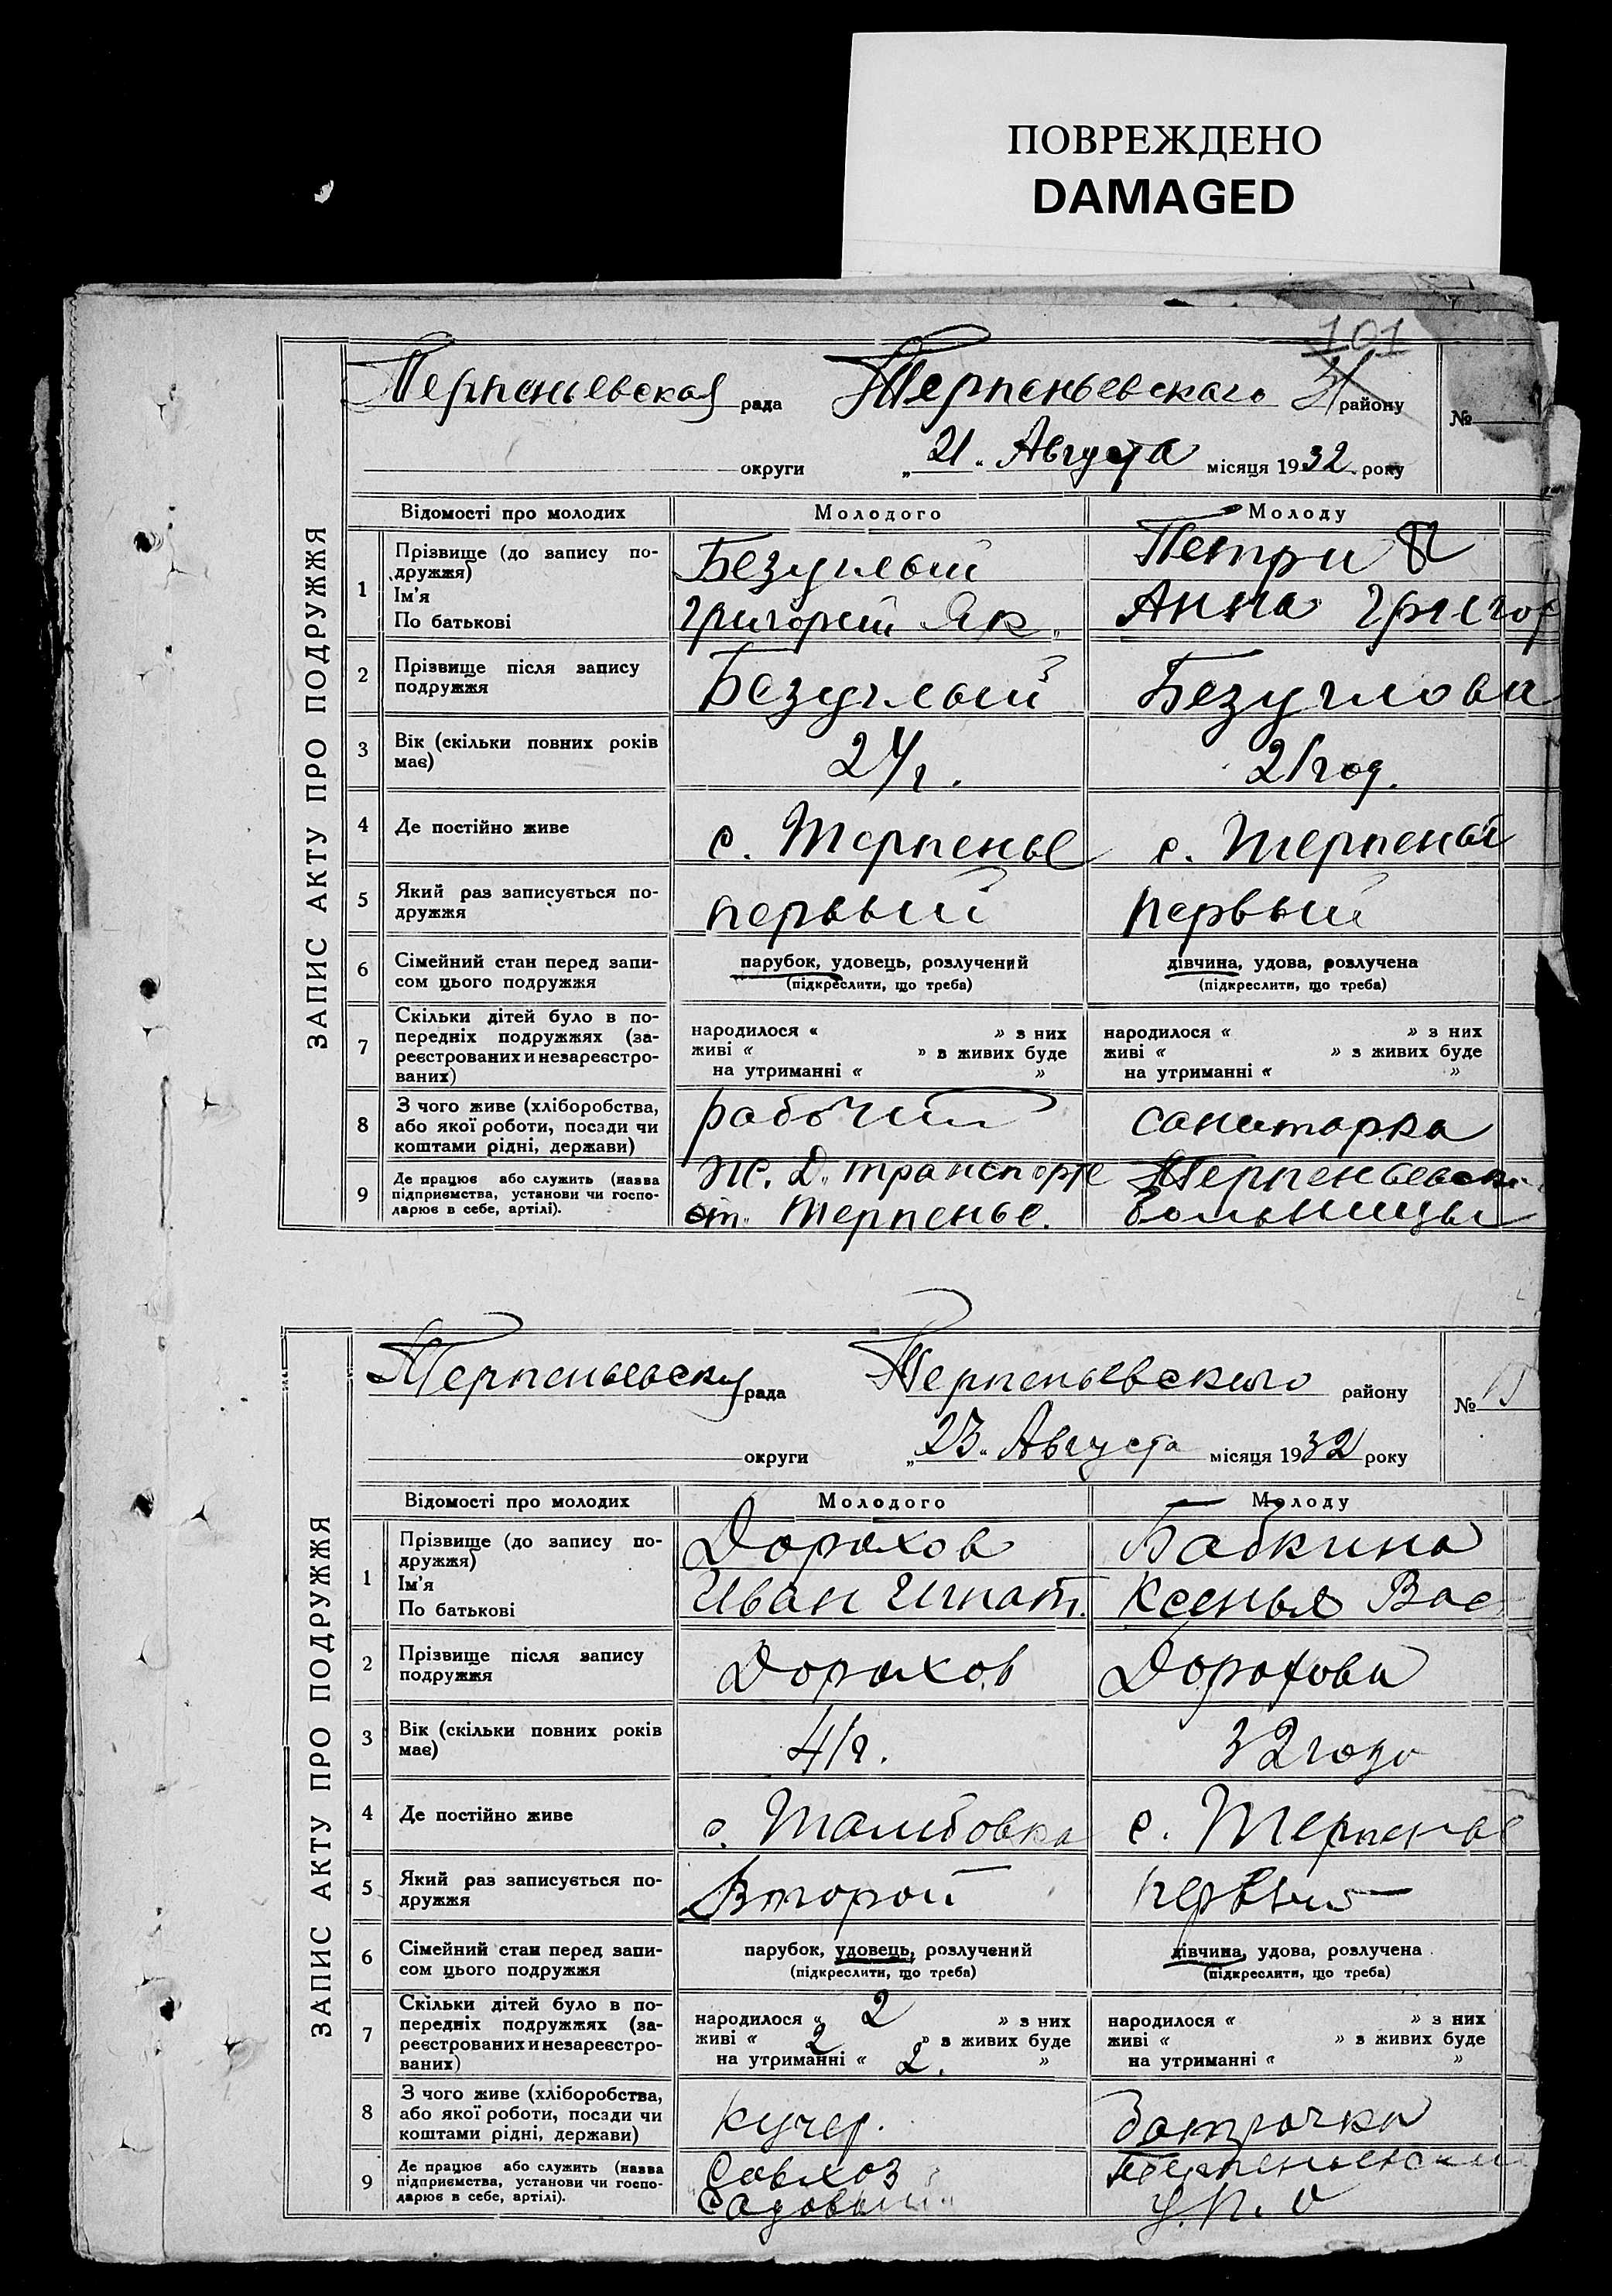 ПОВРЕЖДЕНО
DAMAGED
101
Терпеньевская рада Терпеньевскаго району №
округи „21„ Августа місяця 1932 року
ЗАПИС АКТУ ПРО ПОДРУЖЖЯ
Відомості про молодих Молодого Молоду
1 Прізвище (до запису по-
дружжя)
Ім’я
По батькові
Безуглый
Григорий Як.
Петри
Анна Григор
2 Прізвище після запису
подружжя
Безуглый
Безуглова
3 Вік (скільки повних років
має)
24 г.
21 год.
4 Де постійно живе
с. Терпенье
с. Терпенье
5 Який раз записується по-
дружжя
первый
первый
6 Сімейний стан перед запи-
сом цього подружжя
парубок, удовець, розлучений
(підкреслити, що треба)
дівчина, удова, розлучена
(підкреслити, що треба)
7 Скільки дітей було в по-
передніх подружжях (за-
реєстрованих и незареєстро-
ваних)
народилося « » з них
живі « » з живих буде
на утриманні « »
народилося « » з них
живі « » з живих буде
на утриманні « »
8 З чого живе (хліборобства,
або якої роботи, посади чи
коштами рідні, держави)
рабочий
санитарка
9 Де працює або служить (назва
підприємства, установи чи госпо-
дарює в себе, артілі).
Ж. Д. транспорте
ст. Терпенье.
Терпеньевск
больницы
Терпеньевску рада Терпеньевского району №
округи „23„ Августа місяця 1932 року
ЗАПИС АКТУ ПРО ПОДРУЖЖЯ
Відомості про молодих Молодого Молоду
1 Прізвище (до запису по-
дружжя)
Ім’я
По батькові
Дорахов
Иван Игнат.
Бабкина
Ксенья Вас
2 Прізвище після запису
подружжя
Дорахов
Дорохова
3 Вік (скільки повних років
має)
41 г.
32 года
4 Де постійно живе
с.
с. Терпенье
5 Який раз записується по-
дружжя
Второй
первый
6 Сімейний стан перед запи-
сом цього подружжя
парубок, удовець, розлучений
(підкреслити, що треба)
дівчина, удова, розлучена
(підкреслити, що треба)
7 Скільки дітей було в по-
передніх подружжях (за-
реєстрованих и незареєстро-
ваних)
народилося « 2 » з них
живі « 2 » з живих буде
на утриманні « 2. »
народилося « » з них
живі « » з живих буде
на утриманні « »
8 З чого живе (хліборобства,
або якої роботи, посади чи
коштами рідні, держави)
кучер.
9 Де працює або служить (назва
підприємства, установи чи госпо-
дарює в себе, артілі).
Совхоз
„Садовый„